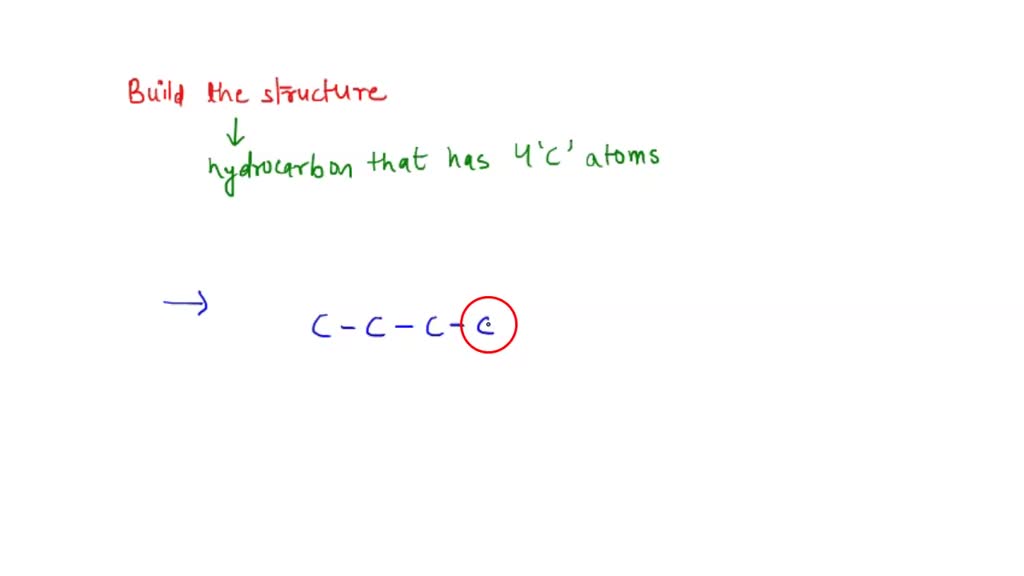 Build the structure
↓
hydrocarbon that has 4 'C' atoms
→ C - C - C - C